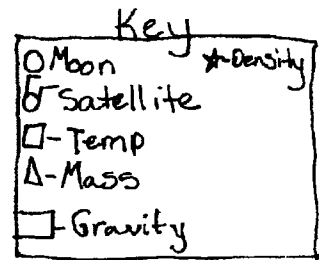 Key
Moon *-Density
Satellite
-Temp
-Mass
-Gravity